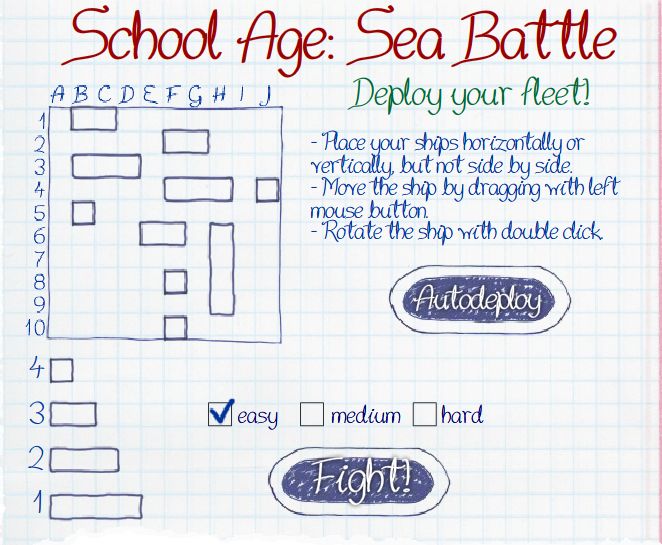 School Age: Sea Battle
A B C D E F G H I J
Deploy your fleet!
1
2
3
4
5
6
7
8
9
10
- Place your ships horizontally or
vertically, but not side by side.
- Move the ship by dragging with left
mouse button.
- Rotate the ship with double click.
Autodeploy
4
3
2
1
easy medium hard
Fight!